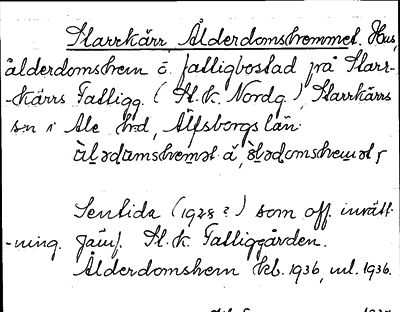 Starrkärr, Ålderdomshemmet. Hus,
ålderdomshem o. fattigbostad på Starr-
-kärrs Fattigg. (St. k. Nordg.), Starrkärrs
sn i Ale hrd, Älfsborgs län.
å, 
Sentida (1928?) som off. inrätt-
-ning. Jämf. St. k. Fattiggården.
Ålderdomshem kl. 1936, ml. 1936.